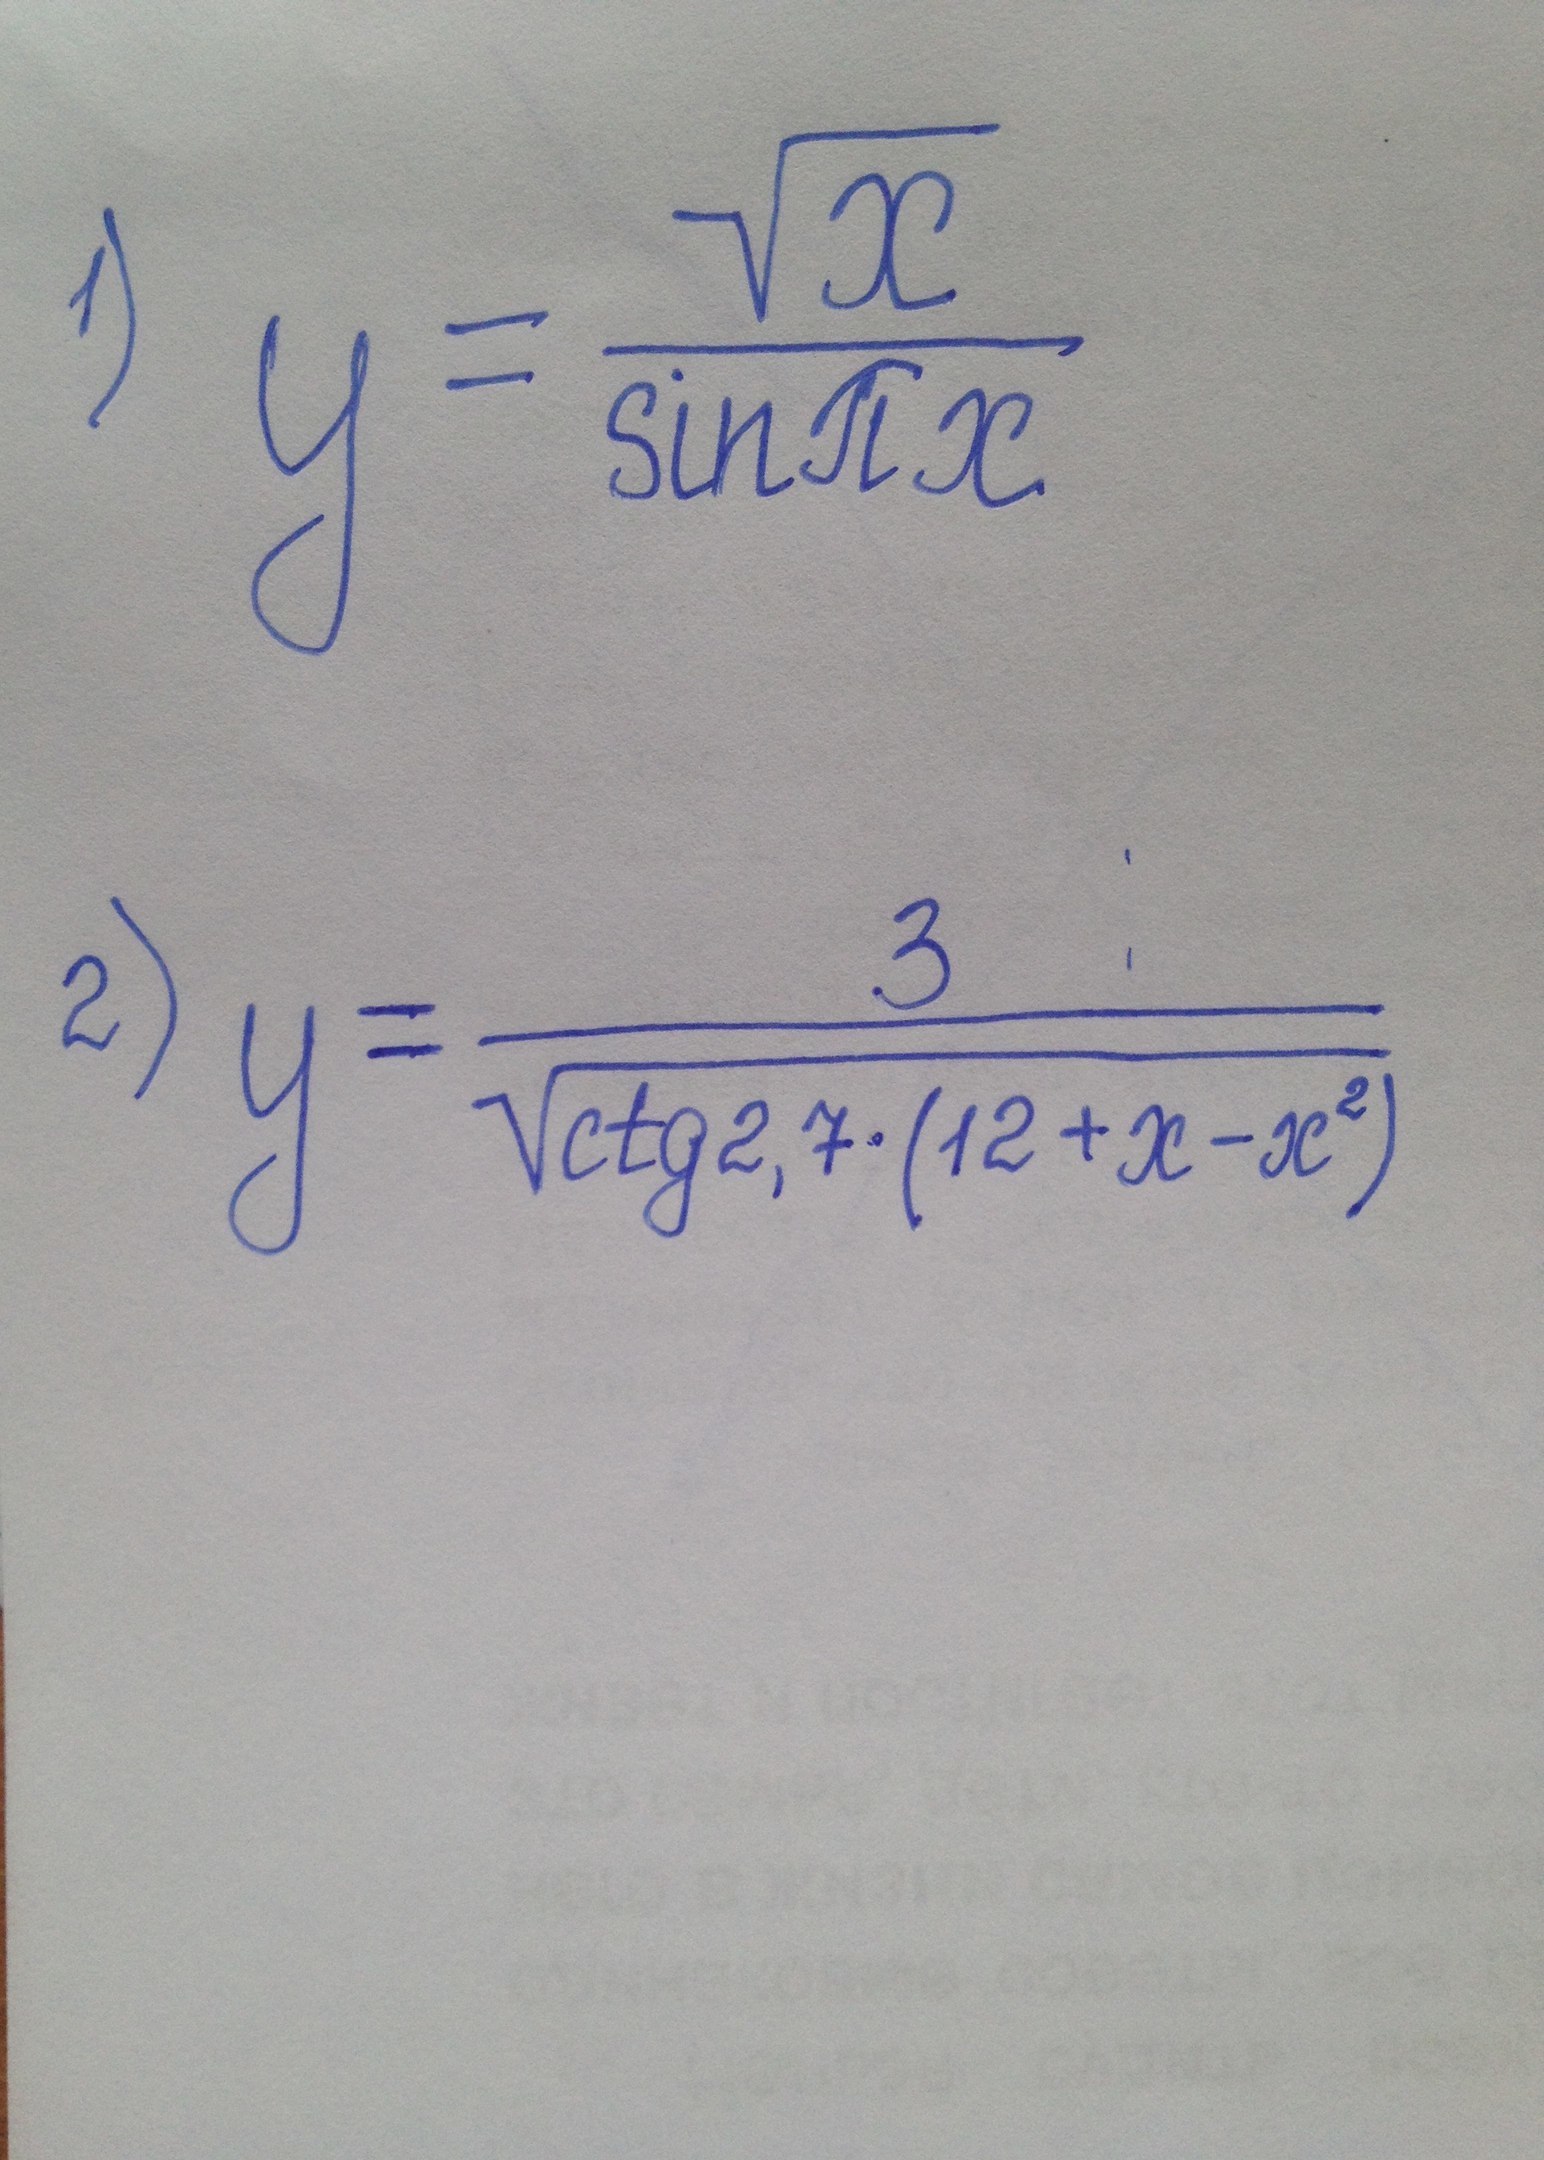 1) y = √x / sin πx
2) y = 3 / √ctg 2,7·(12 + x - x²)